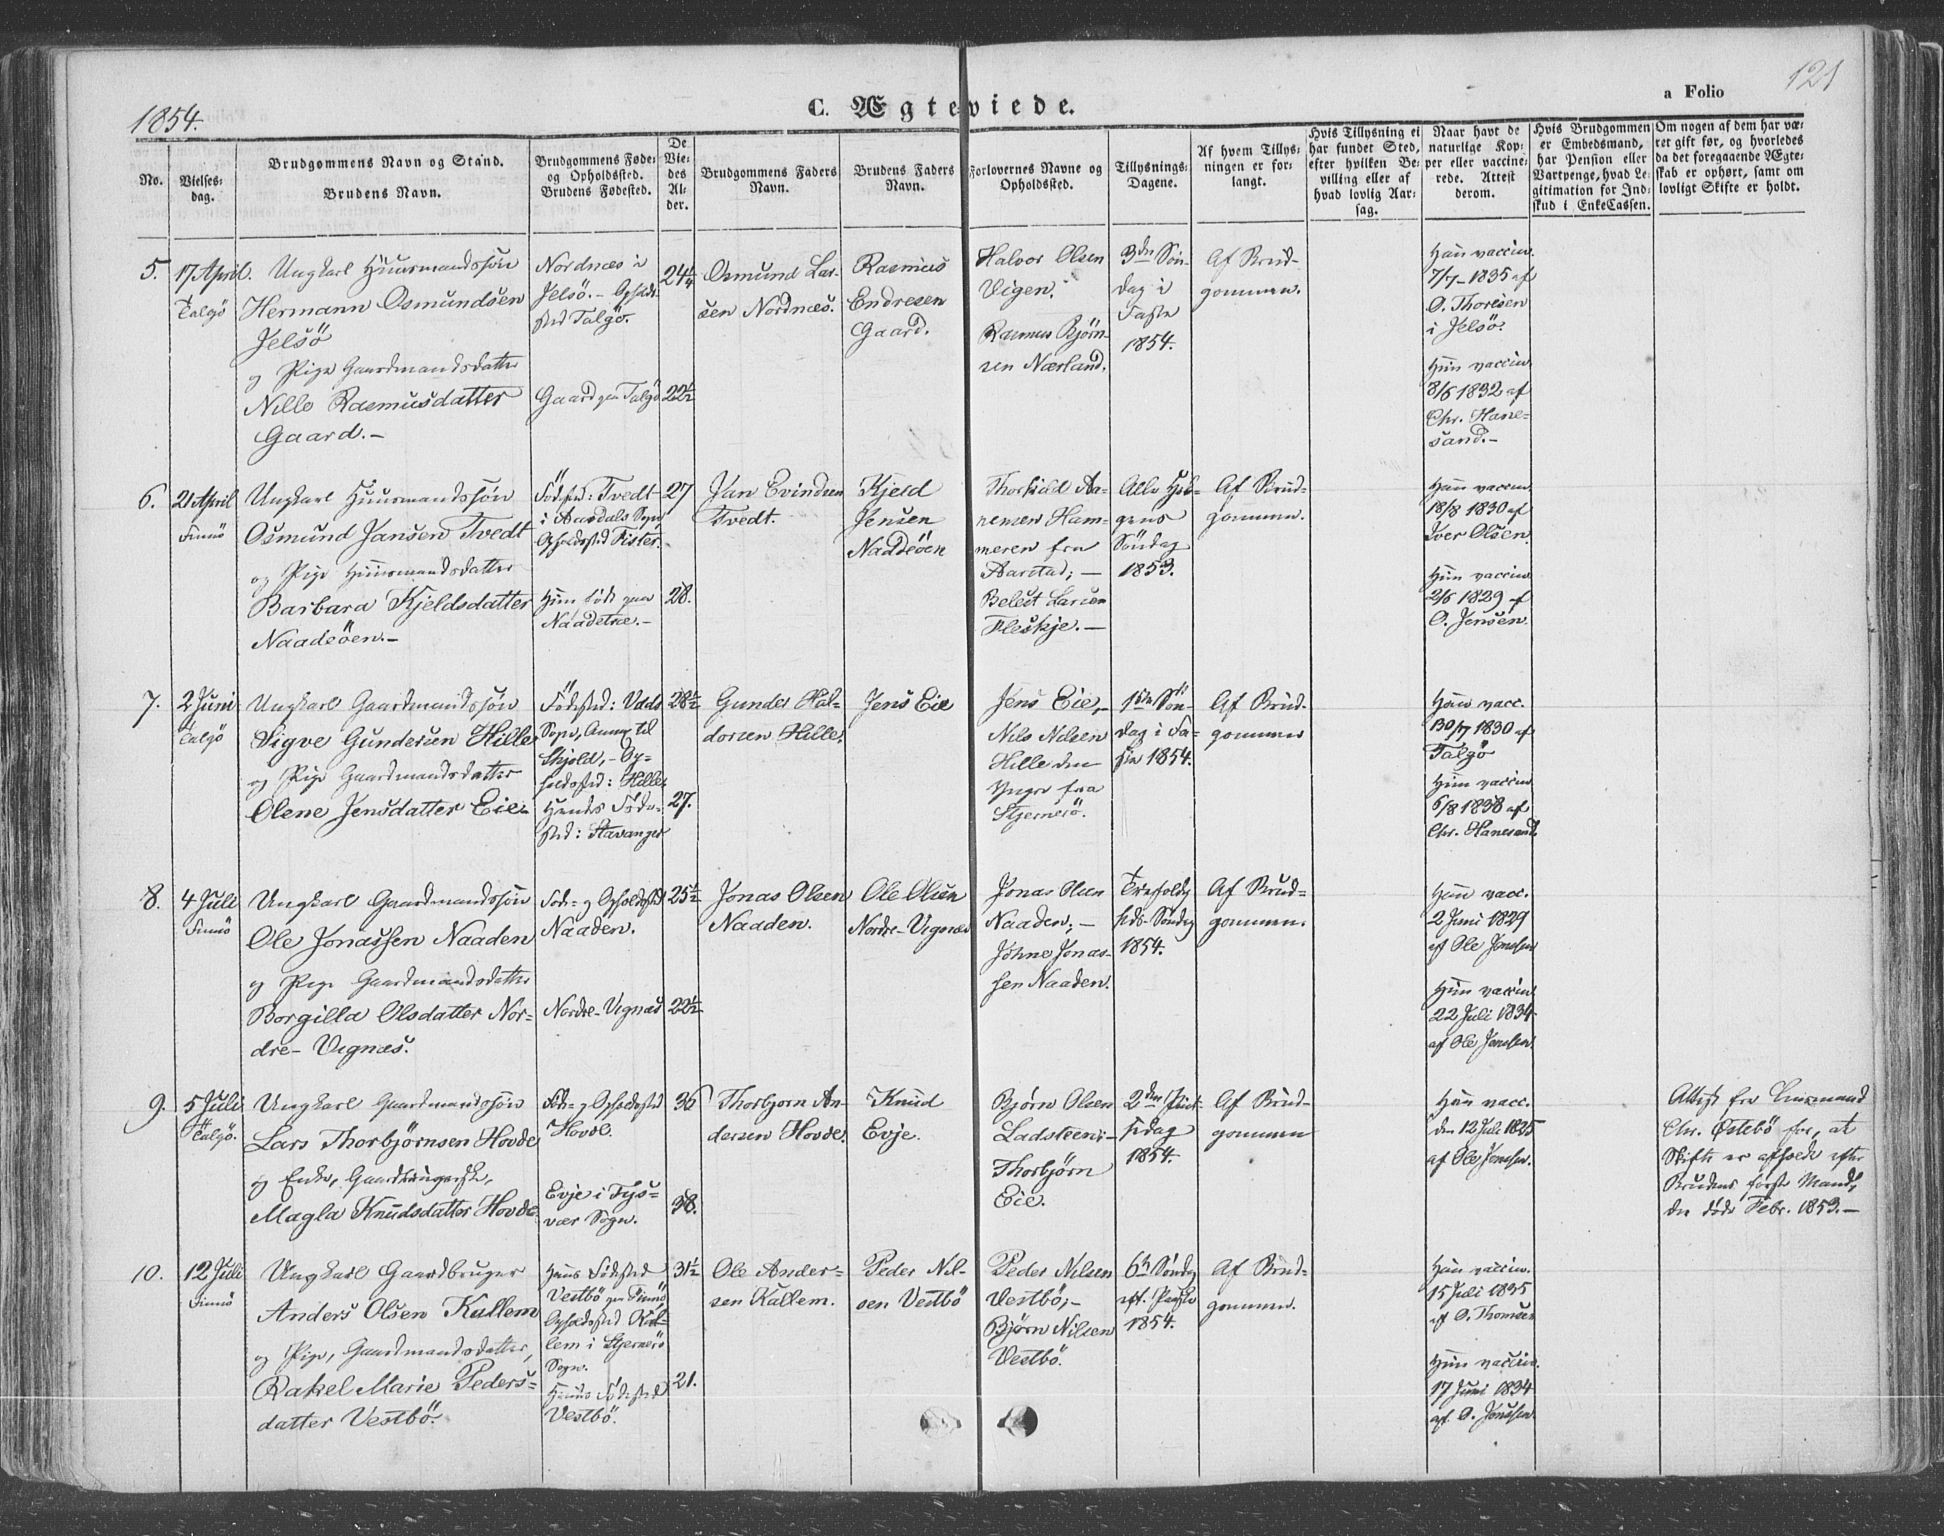 1854.
C. Ægteviede.
a Folio
121
No.
Vielses-
dag.
Brudgommens Navn og Stand.
Brudens Navn.
Brudgommens Føde-
og Opholdssted.
Brudens Fødested.
De
Vie-
des
Al-
der.
Brudgommens Faders
Navn.
Brudens Faders
Navn.
Forlovernes Navne og
Opholdssted.
Tillysnings-
Dagene.
Af hvem Tillys-
ningen er for-
langt.
Hvis Tillysning ei
har fundet Sted,
efter hvilken Be-
villing eller af
hvad lovlig Aar-
sag.
Naar havt de
naturlige Kop-
per eller vaccine-
rede. Attest
derom.
Hvis Brudgommen
er Embedsmand,
har Pension eller
Vartpenge, hvad Le-
gitimation for Ind-
skud i EnkeCassen.
Om nogen af dem har væ-
ret gift før, og hvorledes
da det foregaaende Ægte-
skab er ophørt, samt om
lovligt Skifte er holdt.
5.
17 April.
Talgö
Ungkarl Huusmandssøn
Hermann Osmundsen
Jelsö
og Pige Gaardmandsdatter
Nille Rasmusdatter
Gaard.-
Nordnæs i
Jelsö.- Opholds-
sted Talgö.
Gaard paa Talgö
24¼
22½
Osmund Lar-
sen Nordnæs.
Rasmus
Endresen
Gaard.
Halvor Olsen
Vigen.
Rasmus Bjørn-
sen Nærland.
3die Søn-
dag i
Faste
1854.
Af Brud-
gommen.
Han vaccin.
7/7-1835 af
O. Thoresen
i Jelsö.
Hun vaccin.
8/6 1832 af
Chr. Hane-
sand.-
6.
21 April
Finnö
Ungkarl Huusmandssøn
Osmund Jansen Tvedt
og Pige Huusmandsdatter
Barbara Kjeldsdatter
Naadeöen.-
Fødested: Tvedt
i Aardals Sogn
Opholdssted Fister.
Hun født paa
Naadetræ.-
27
28.
Jan Evindsen
Tvedt.
Kjeld
Jensen
Naddeöen
Thorkild Aa-
nensen Ham-
meren fra
Aarstad; -
Belest Larsen
Fleskje.-
Alle Hel-
gens
Söndag
1853.
Af Brud-
gommen.
Han vaccin.
18/8 1830 af
Iver Olsen.
Hun vaccin.
2/6 1829 af
O. Jensen.
7.
2 Juni
Talgö
Ungkarl Gaardmandssøn
Sigve Gundersen Hille
og Pige Gaardmandsdatter
Olene Jensdatter Eie.
Fødested: Vads
Sogn, Annex til
Skjold,- Op-
holdssted: Hille.
Hendes Føde-
sted: Stavanger
28½
27.
Gunder Hal-
dorsen Hille.
Jens Eie
Jens Eie,-
Nils Nilsen
Hille den
Yngre fra
Stjernerö.
1ste Søn-
dag i Fa-
ste 1854.
Af Brud-
gommen
Han vacc.
30/7 1830 af
Talgö
Hun vaccin.
6/8 1838 af
Chr. Hanesand.
8.
4 Juli
Finnö
Ungkarl Gaardmandssøn
Ole Jonassen Naaden
og Pige Gaardmandsdatter
Borgilla Olsdatter Nor-
dre- Vignæs.
Føde- og Opholdssted
Naaden.
Nordre-Vignæs
25½
22½
Jonas Olsen
Naaden.
Ole Olsen
Nordre-Vignæs
Jonas Olsen
Naaden; -
Johne Jonas-
sen Naaden.
Trefoldig
heds-Søndag
1854.
Af Brud-
gommen.
Han vacc.
2 Juni 1829
af Ole Jonassen
Hun vaccin.
22 Juli 1834
af Ole Jonassen.
9.
5 Juli
Talgö.
Ungkarl Gaardmandssøn
Lars Thorbjörnsen Hovde
og Enke, Gaardbrugerske,
Magla Knudsdatter Hovde.
Føde- og Opholdssted
Hovde.
Evje i Tys-
vær Sogn.
36
38.
Thorbjorn An-
dersen Hovde.
Knud
Evje.
Bjørn Olsen
Ladsteen; -
Thorbjörn
Eie.
2den Pint-
sedag
1854.
Af Brud-
gommen
Han vacc.
den 12 Juli 1825
af Ole Jonassen.
Attest fra Lensmand
Chr. Østebö for, at
Skifte er afholdt efter
Brudens første Mand,
der døde Febr. 1853.-
10.
12 Juli
Finnö
Ungkarl Gaardbruger
Anders Olsen Kallem
og Pige, Gaardmandsdatter,
Rakel Marie Peders-
datter Vestbö.
Hans Fødested
Vestbö paa Finnö
Opholdssted Kal-
lem i Stjernerö
Sogn.
Hendes Fødested
Vestbö.
31½
21.
Ole Ander-
sen Kallem.
Peder Nil-
sen Vestbö
Peder Nilsen
Vestbö,-
Bjørn Nilsen
Vestbö.
6te Søndag
eft. Paaske
1854.
Af Brud-
gommen.
Han vaccin.
15 Juli 1835
af O. Thomsen
Hun vaccin.
17 Juni 1834
af O. Jonassen.